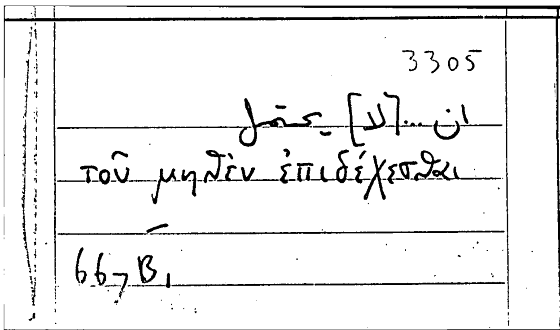 3305
ان ... [لا] يحتمل
τοῦ μηθὲν ἐπιδέχεσθαι
667 B,